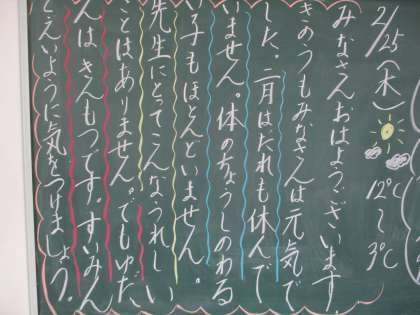 2/25(木)
12℃〜3℃
みなさんおはようございます
きのうもみなさんは元気で
した。二月は、だれも休んで
いません。体のちょうしのわる
い子もほとんどいません。
先生にとってこんなうれしい
ことはありません。でもゆだ
んはきんもつです。すいみん
とえいように気をつけましょう。